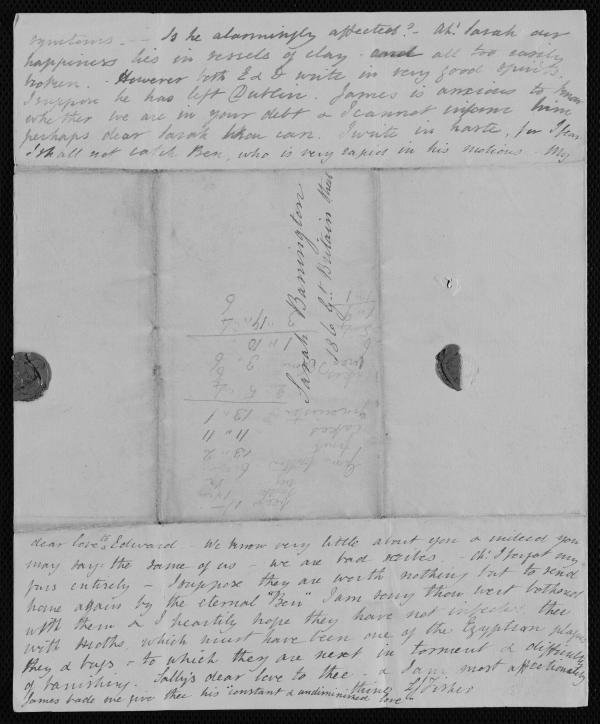 symptoms. — Is he alarmingly affected? — Ah! Sarah our
happiness lies in vessels of clay and all too easily
broken. However both Ed & write in very good spirits.
I suppose he has left Dublin. James is anxious to know
whether we are in your debt & I cannot inform him
perhaps dear Sarah thou can. I write in haste, for I fear
I shall not catch Ben, who is very rapid in his motions. My
Sarah Barrington
136 Gt Britain Street
dear love to Edward. We know very little about you & indeed you
may say the same of us — we are bad scribes. Ah! I forgot my
furs entirely — I suppose they are worth nothing but to send
home again by the eternal "Ben" I am sorry thou wert bothered
with them & I heartily hope they have not infected thee
with Moths, which must have been one of the Egyptian plagues
they & bugs — to which they are next in torment & difficulty
of banishing. Sally's dear love to thee & I am most affectionately
thine LJ Fisher
James bade me give thee his "constant & undiminished love"